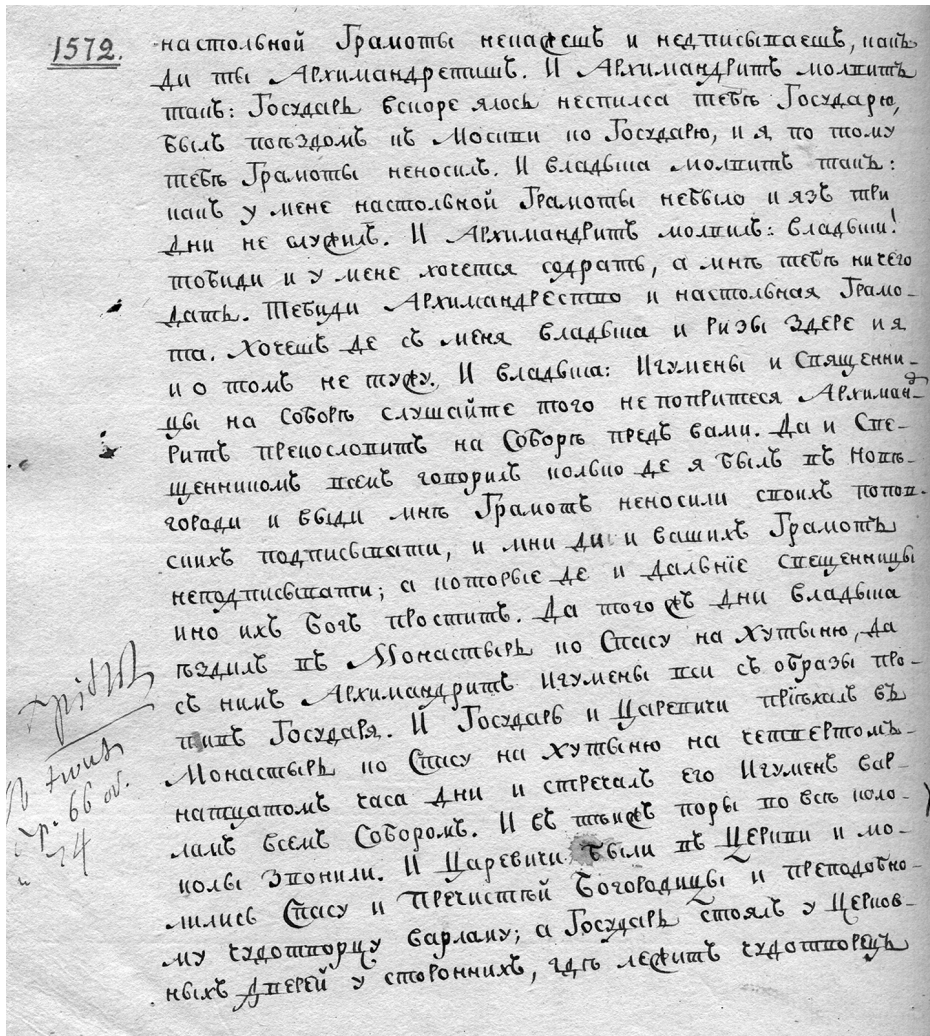 1572.
настольной Грамоты некажешъ и недписываешъ, какъ
ди ты Архимандретишъ. И Архимандритъ молвитъ
такъ: Государь вскоре ялось неспилса тебѣ Государю,
былъ поѣздомъ къ Москви ко Государю, и я по тому
тебѣ Грамоты неносилъ. И владыка молвитъ такъ:
какъ у мене настольной Грамоты небыло и язъ три
дни не служилъ. И Архимандритъ молвилъ: владыки!
тобиди и у мене хочется содрать, а мнѣ тебѣ ничего
дать. Тебиди Архимандрество и настольная Грамо-
та. Хочешъ де съ меня владыка и ризы здере и я
и о томъ не тужу. И владыка: Игумены и Священни-
цы на Соборѣ слушайте того непопритеся Архиманд-
ритъ прекословитъ на Соборѣ предъ вами. Да и Све-
щенникомъ всемъ говорилъ колько де я былъ въ Новѣ-
городи и выди мнѣ Грамотъ неносили своихъ попов-
скихъ подписывати, и мни ди и вашихъ Грамотъ
неподписывати; а которые де и дальнїе свещенницы
ино ихъ Богъ проститъ. Да тогожъ дни владыка
ѣздилъ въ Монастырь ко Спасу на Хутыню, да
съ нимъ Архимандритъ игумены вси съ образы про-
тивъ Государя. И Государь и Царевичи прїѣхалъ въ
Монастырь ко Спасу на Хутыню на четвертомъ-
натцатомъ часа дни и стречалъ его Игуменъ Вар-
ламъ всемъ Соборомъ. И въ тыижъ поры по всѣ коло-
колы звонили. И Царевичи были въ Церкви и мо-
лились Спасу и Пречистѣй Богородицы и преподобно-
му чудотворцу Варламу; а Государь стоялъ у Церков-
ныхъ дверей у сторонихъ, гдѣ лежитъ чудотворецъ
66 об.
74